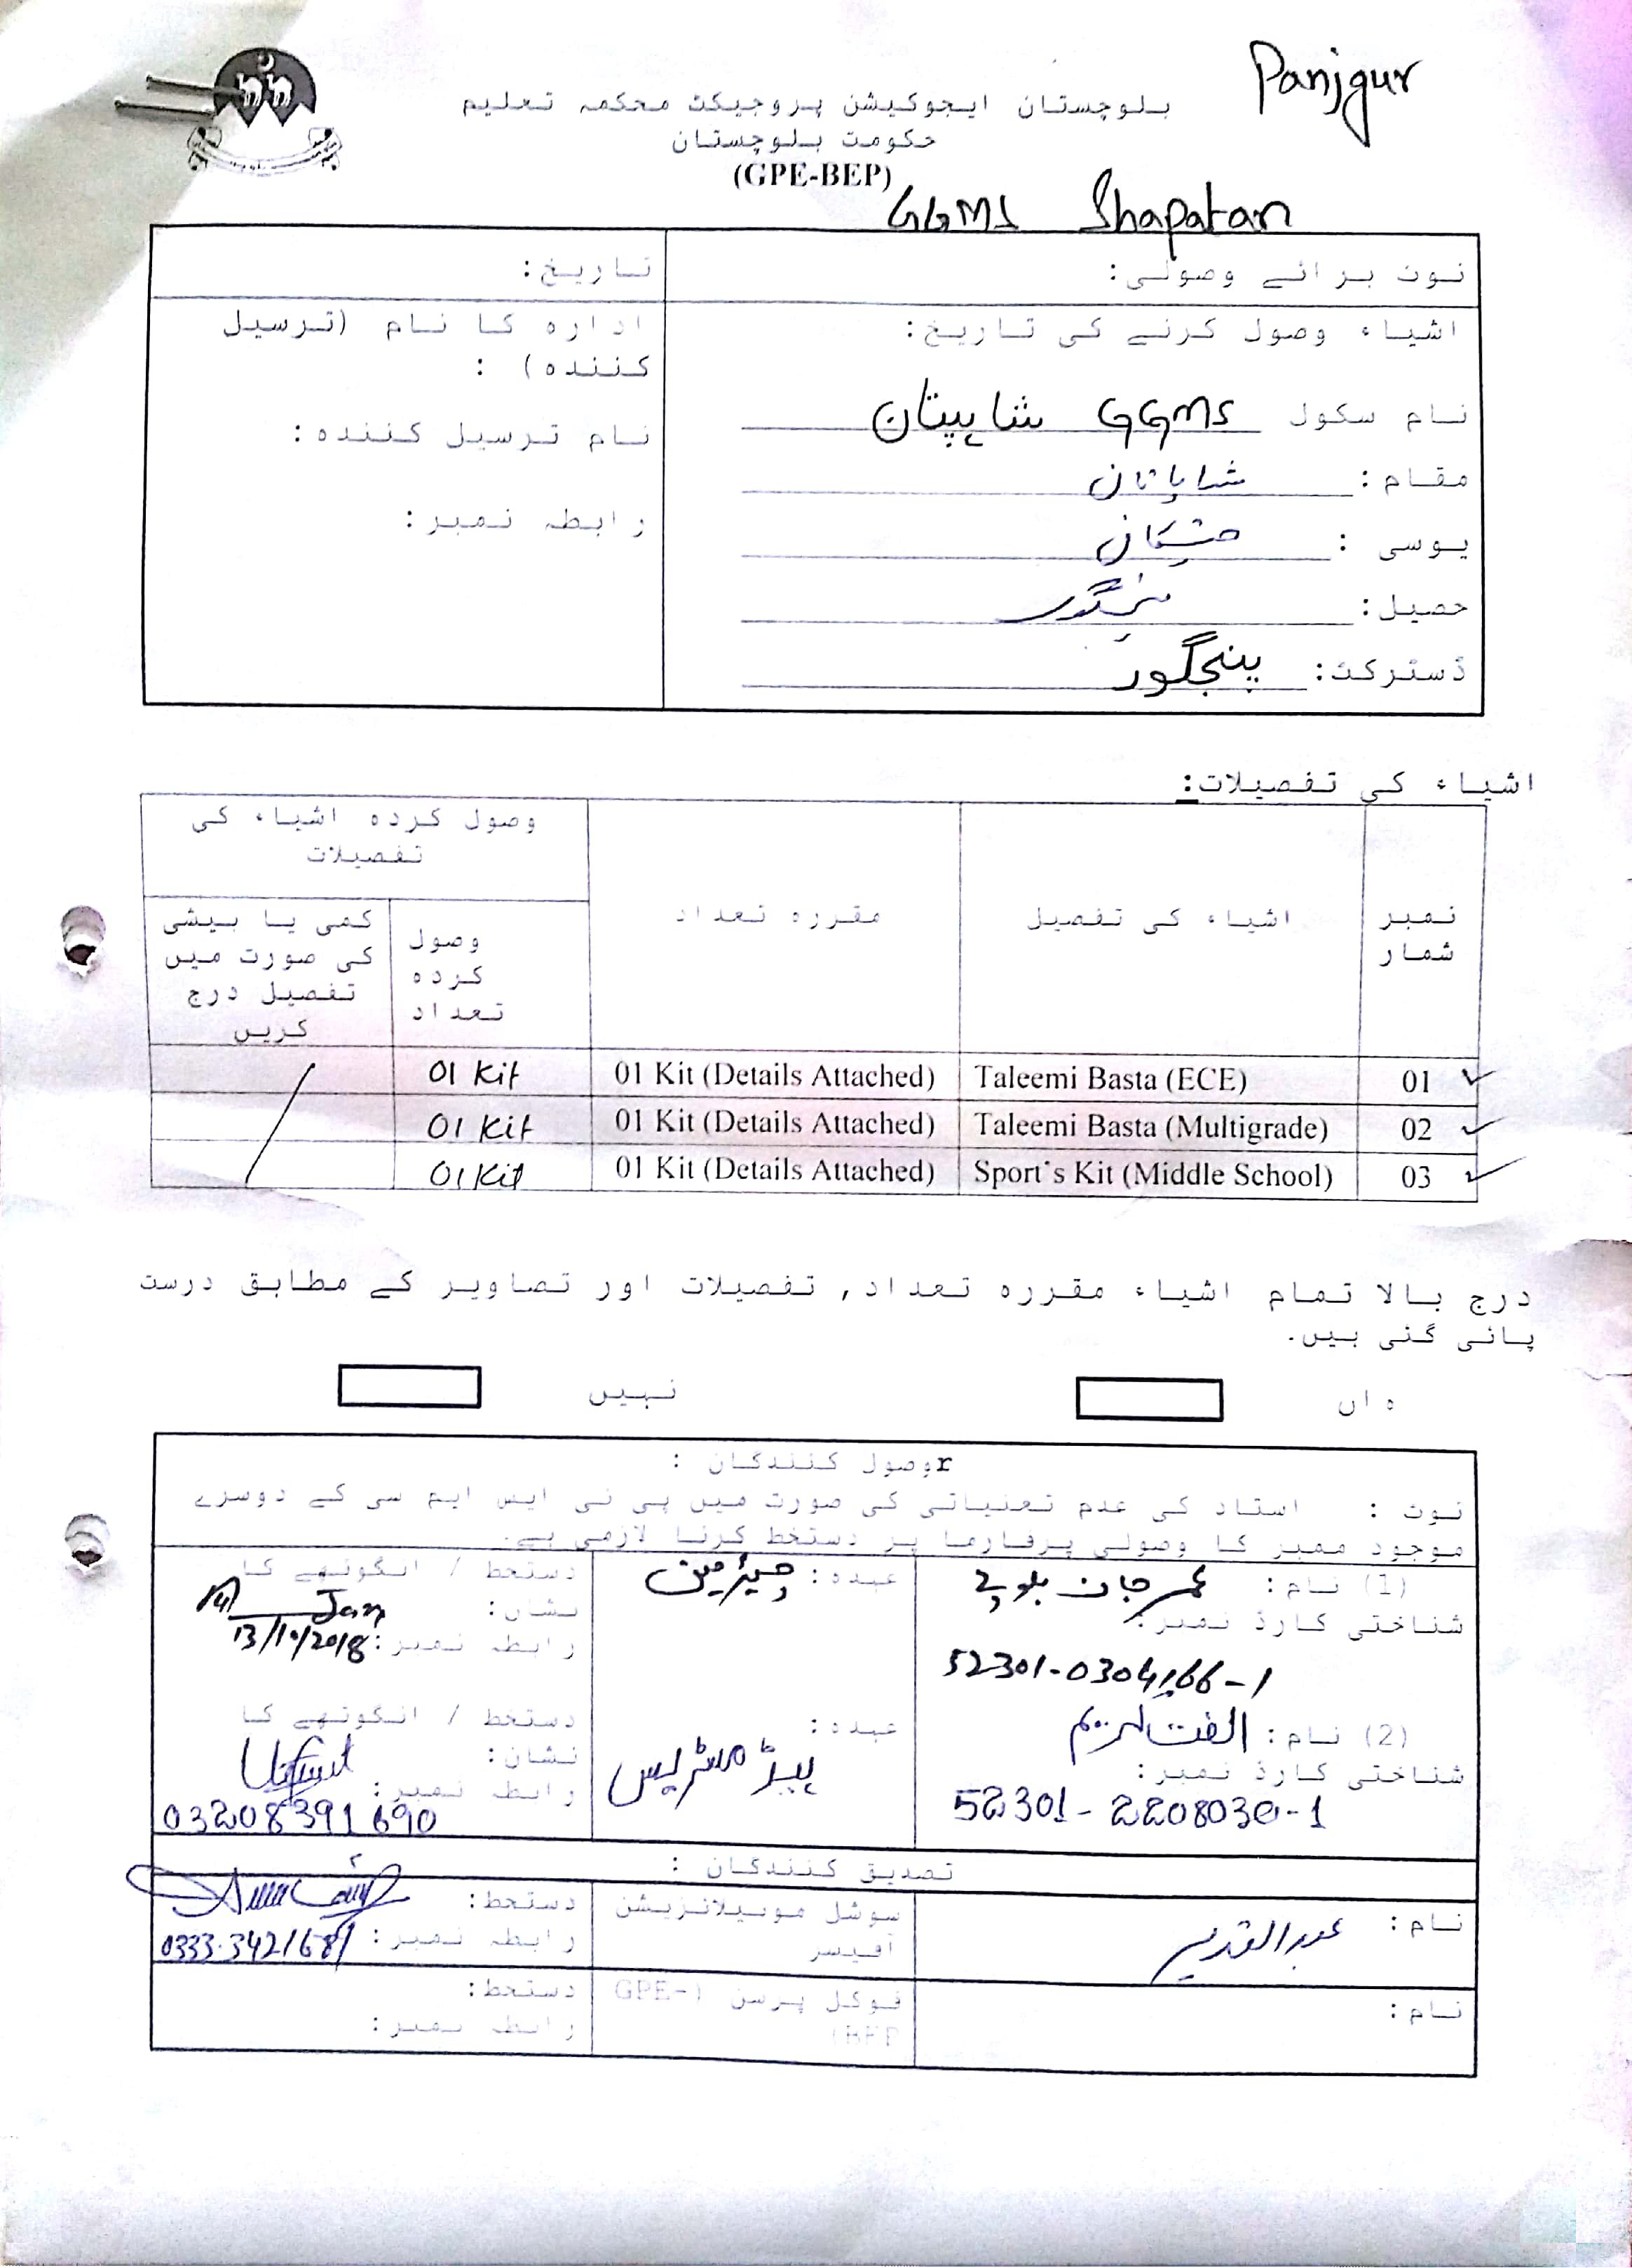 Panjgur
بلوچستان ایجوکیشن پروجیکٹ محکمہ تعلیم
حکومت بلوچستان
(GPE-BEP)
GGMS Shapatan
نوٹ برائے وصولی:
تاریخ:
اشیاء وصول کرنے کی تاریخ:
نام سکول GGMS شاپتان
مقام: شاپاتان
یوسی :
حصیل: پنجگور
ڈسٹرکٹ: پنجگور
ادارہ کا نام (ترسیل
کنندہ) :
نام ترسیل کنندہ:
رابطہ نمبر:
اشیاء کی تفصیلات:
نمبر شمار
اشیاء کی تفصیل
مقررہ تعداد
وصول کردہ اشیاء کی تفصیلات
وصول کردہ تعداد
کمی یا بیشی کی صورت میں تفصیل درج کریں
01 Taleemi Basta (ECE) 01 Kit (Details Attached) 01 Kit
02 Taleemi Basta (Multigrade) 01 Kit (Details Attached) 01 Kit
03 Sport's Kit (Middle School) 01 Kit (Details Attached) 01 Kit
درج بالا تمام اشیاء مقررہ تعداد, تفصیلات اور تصاویر کے مطابق درست
پائی گئی ہیں.
ہاں
نہیں
rوصول کنندگان :
نوٹ : استاد کی عدم تعنیاتی کی صورت میں پی ٹی ایس ایم سی کے دوسرے
موجود ممبر کا وصولی پرفارما پر دستخط کرنا لازمی ہے.
(1) نام: عمر جان بلوچ
شناختی کارڈ نمبر:
52301-0304166-1
عہدہ: چیئرمین
دستخط / انگوٹھے کا
نشان: Jan
رابطہ نمبر: 13/10/2018
(2) نام: الفت کریم
شناختی کارڈ نمبر:
52301-2208030-1
عہدہ:
ہیڈ مسٹریس
دستخط / انگوٹھے کا
نشان:
رابطہ نمبر:
03208391690
تصدیق کنندگان :
نام: عبدالقدیر
سوشل موبیلائزیشن
آفیسر
دستخط:
رابطہ نمبر: 0333-3421681
نام:
فوکل پرسن (GPE-
BEP)
دستخط:
رابطہ نمبر: